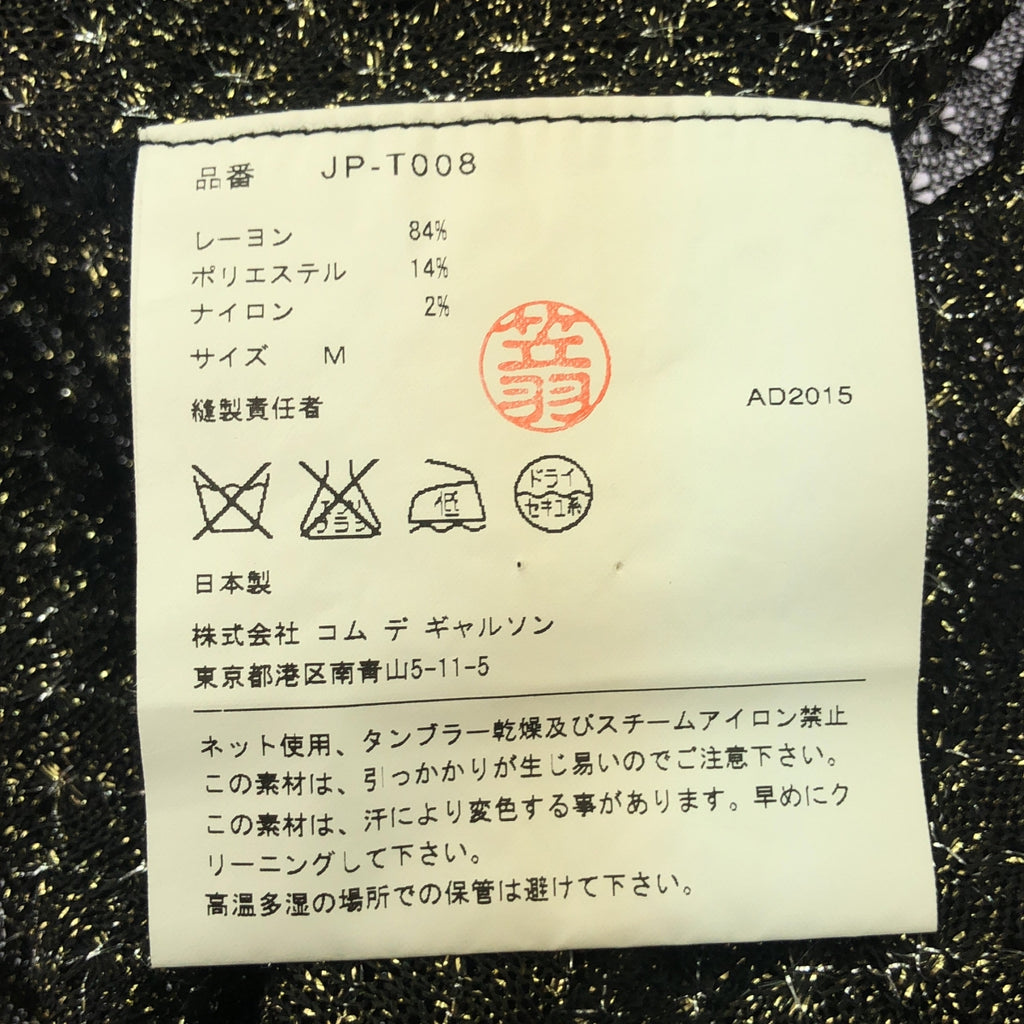 品番 JP-T008
レーヨン 84%
ポリエステル 14%
ナイロン 2%
サイズ M
縫製責任者
AD2015
低
ドライ
セキユ系
日本製
株式会社 コム デ ギャルソン
東京都港区南青山5-11-5
ネット使用、タンブラー乾燥及びスチームアイロン禁止
この素材は、引っかかりが生じ易いのでご注意下さい。
この素材は、汗により変色する事があります。早めにク
リーニングして下さい。
高温多湿の場所での保管は避けて下さい。